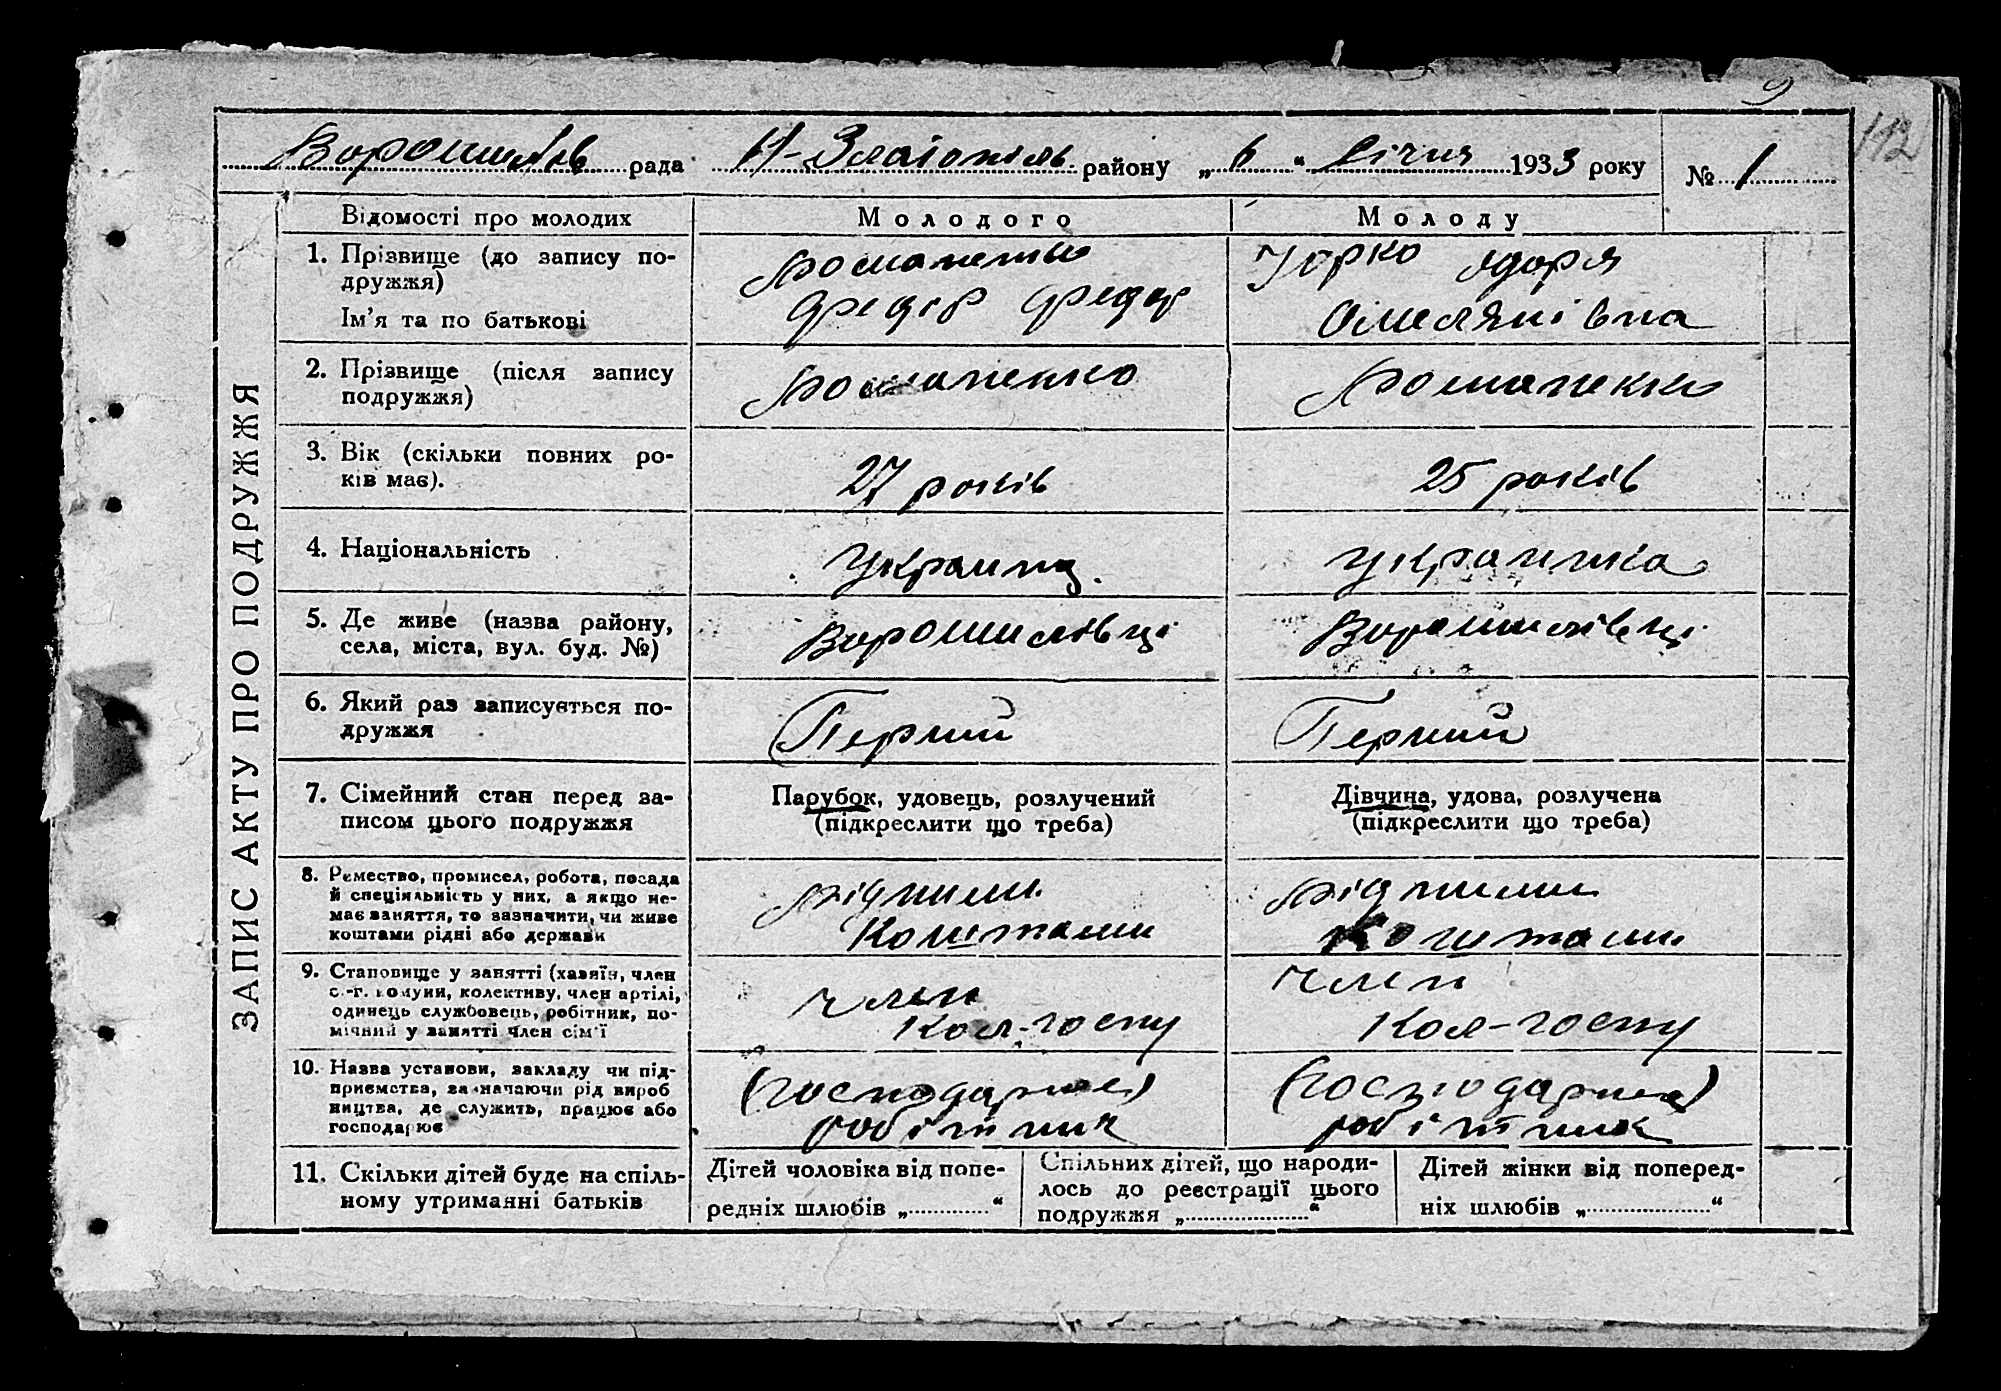 9
112
Ворошилов рада Н-Златопіль району „ 6 “ Січня 1933 року № 1
ЗАПИС АКТУ ПРО ПОДРУЖЖЯ
Відомості про молодих Молодого Молоду
1. Прізвище (до запису по-
дружжя)
Ім'я та по батькові
Романенко
Федір Федор
Юрко Одаря
Омелянівна
2. Прізвище (після запису
подружжя)
Романенко
Романенко
3. Вік (скільки повних ро-
ків має).
27 років
25 років
4. Національність
Украинц.
Украинка
5. Де живе (назва району,
села, міста, вул. буд. №)
Ворошилівці
Ворошилівці
6. Який раз записується по-
дружжя
Перший
Перший
7. Сімейний стан перед за-
писом цього подружжя
Парубок, удовець, розлучений
(підкреслити що треба)
Дівчина, удова, розлучена
(підкреслити що треба)
8. Ремество, промисел, робота, посада
й спеціяльність у них, а якщо не-
має заняття, то зазначити, чи живе
коштами рідні або держави
Рідними
Коштами
Рідними
Коштами
9. Становище у занятті (хазяїн, член
с.-г. комуни, колективу, член артілі,
одинець службовець, робітник, по-
мічний у занятті член сім'ї
Член
Кол-госпу
Член
Кол-госпу
10. Назва установи, закладу чи під-
приємства, зазначаючи рід вироб
ництва, де служить, працює або
господарює
(господарює)
робітник
(господарює)
робітник
11. Скільки дітей буде на спіль-
ному утриманні батьків
Дітей чоловіка від попе-
редніх шлюбів „ “
Спільних дітей, що народи-
лось до реєстрації цього
подружжя „ “
Дітей жінки від поперед-
ніх шлюбів „ “